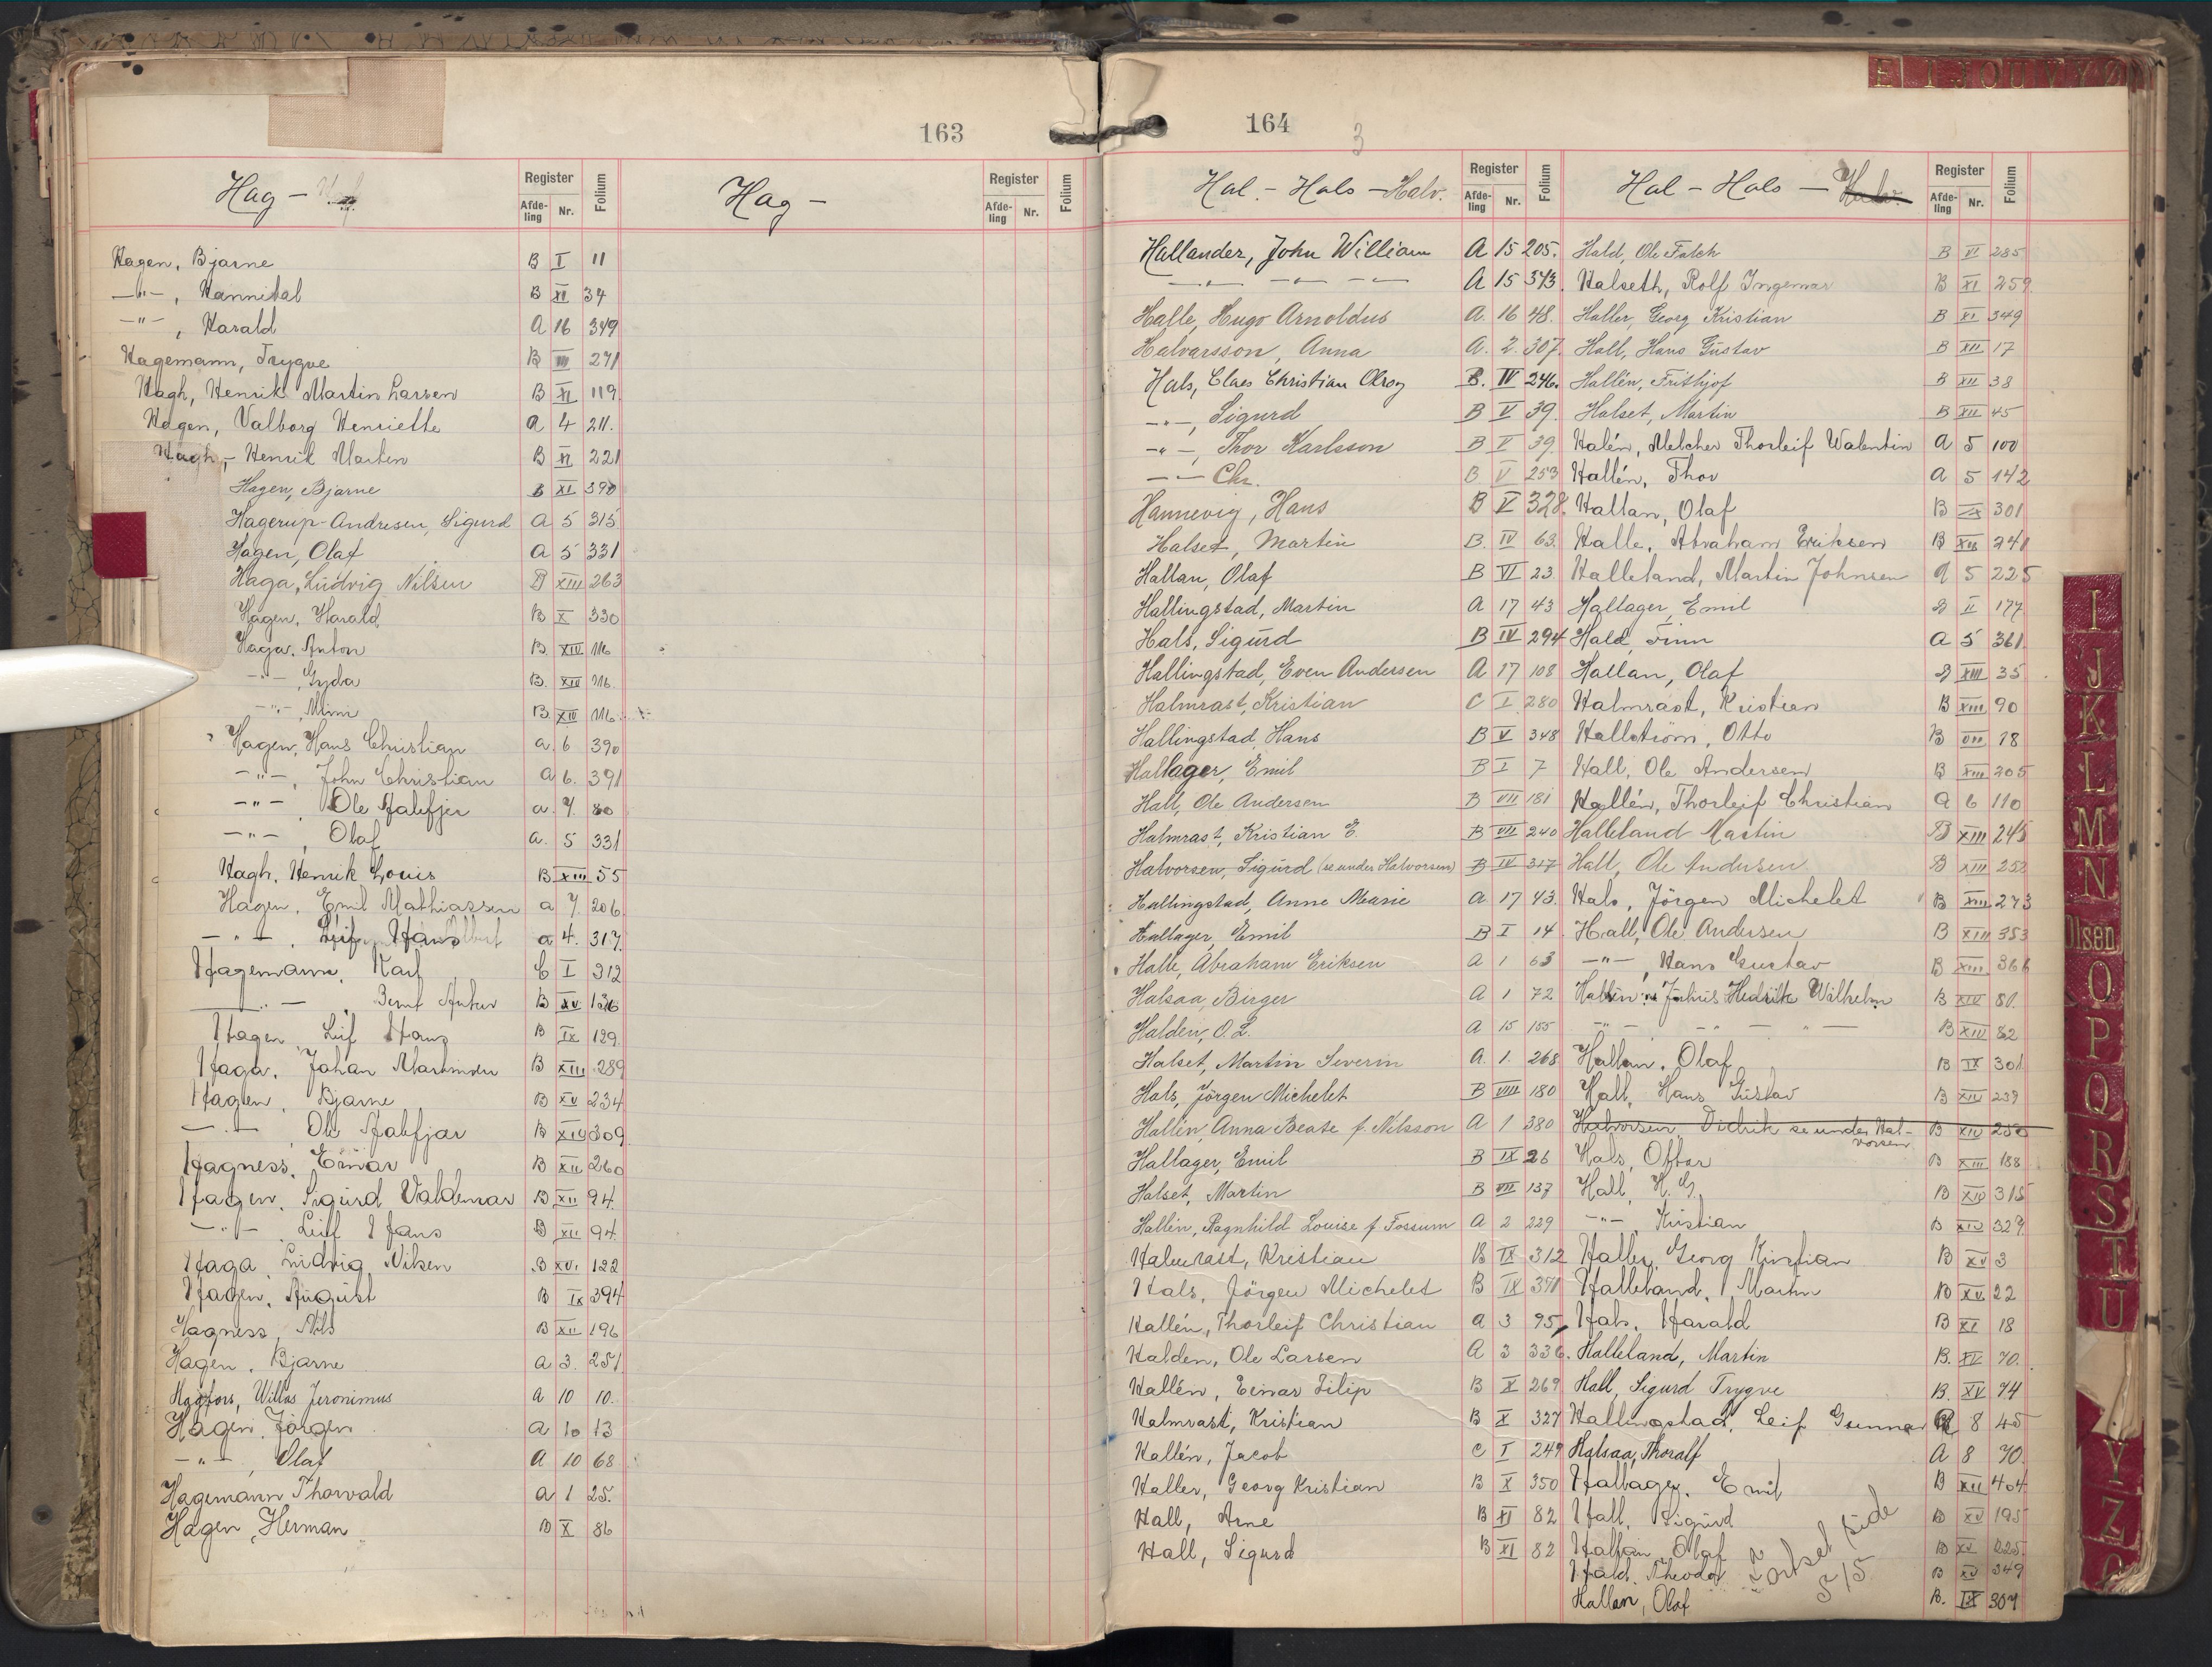 163
Hag -
Register
Afde-
ling
Nr.
Folium
Hagen, Bjarne B I 11
-"-, Hannibal B XI 34
-"-, Harald A 16 349
Hagemann, Trygve B III 271
Hagh, Henrik Martin Larsen B XI 119
Hagen, Valborg Henriette A 4 211.
Hagh, - Henrik Martin B XI 221
Hagen, Bjarne B XI 390
Hagerup-Andresen, Sigurd A 5 315
Hagen, Olaf A 5 331
Haga, Ludvig Nilsen B XIII 263
Hagen, Harald B X 330
Haga, Anton B. XIV 116
-"-, Gyda B. XIV 116
-"-, Mimi B. XIV 116
Hagen, Hans Christian a. 6 390
-"-, John Christian a 6. 391
-"-, Ole Stalefjer a. 7. 80
-"-, Olaf a. 5 331
Hagh, Henrik Louis B XIII 55
Hagen, Emil Mathiassen a 7. 206
-"-, Leif Hans a 4. 317.
Hagemann, Karl C I 312
-"-, Bernt Anker B XV 136
Hagen, Leif Hans B IX 129
Haga, Johan Martinsen B XIII 289
Hagen, Bjarne B XV 234
-"-, Ole Stalefjer B XIV 309
Hagness, Einar B XII 260
Hagen, Sigurd Valdemar B XII 94.
-"-, Leif Hans B XII 94
Haga, Ludvig Nilsen B XVI 122
Hagen, August B IX 394
Hagness, Nils B XII 196
Hagen, Bjarne A 3. 251
Hagfors, Willas Jeronimus A 10 10.
Hagen, Jörgen A 10 13
-"-, Olaf A 10 68
Hagemann Thorvald a 1 25.
Hagen, Herman B X 86
Hag -
Register
Afde-
ling
Nr.
Folium
164
3
Hal - Hals - Halv.
Register
Afde-
ling
Nr.
Folium
Hallander, John William A 15 205.
-"- -"- -"- A 15 373.
Halle, Hugo Arnoldus A. 16 48.
Halvarsson, Anna A. 2. 307.
Hals, Claes Christian Olrog B. IV 246.
-"-, Sigurd B V 39.
-"-, Thor Karlsson B V 39.
-"- Chr. B V 253
Hannevig, Hans B V 328.
Halset, Martin B. IV 63.
Hallan, Olaf B VI 23
Hallingstad, Martin A 17 43
Hals, Sigurd B IV 294
Hallingstad, Even Andersen A 17 108
Halmrast, Kristian C I 280
Hallingstad, Hans B V 348
Hallager, Emil B I 7
Hall, Ole Andersen B VII 181
Halmrast, Kristian E. B VII 240
Halvorsen, Sigurd (se under Halvorsen) B IV 317
Hallingstad, Anne Marie A. 17 43.
Hallager, Emil B I 14
Halle, Abraham Eriksen A 1 63
Halsaa, Birger A 1 72
Halden, O. L. A 15 155
Halset, Martin Severin A. 1. 268
Hals, Jörgen Michelet B VIII 180
Hallén, Anna Beate f. Nilsson A 1 380
Hallager, Emil B IX 26
Halset, Martin B VII 137
Hallén, Ragnhild Louise f. Fossum A 2 229
Halmrast, Kristian B IX 312
Hals, Jörgen Michelet B IX 371
Hallén, Thorleif Christian A 3 95
Halden, Ole Larsen A 3 336.
Hallén, Einar Filip B X 269
Halmrast, Kristian B X 327
Hallén, Jacob C I 249
Haller, Georg Kristian B X 350
Hall, Arne B XI 82
Hall, Sigurd B XI 82
Hal - Hals - Halv.
Register
Afde-
ling
Nr.
Folium
Hald, Ole Falch B VI 285
Halseth, Rolf Ingemar B XI 259
Haller, Georg Kristian B XI 349
Hall, Hans Gustav B XII 17
Hallén, Frithjof B XII 38
Halset, Martin B XII 45
Halén, Melcher Thorleif Walentin A 5 100
Hallén, Thor A 5 142
Hallan, Olaf B IX 301
Halle, Abraham Eriksen B XII 241
Halleland, Martin Johnsen A 5 225
Hallager, Emil B II 177
Hald, Finn A 5 361
Hallan, Olaf B XIII 35
Halmrast, Kristian B XIII 90
Hallström, Otto B VII 18
Hall, Ole Andersen B XIII 205
Hallén, Thorleif Christian A 6 110
Halleland Martin B XIII 245
Hall, Ole Andersen B XIII 252
Hals, Jörgen Michelet B XIII 273
Hall, Ole Andersen B XIII 353
-"-, Hans Gustav B XIII 366
Hallén, Julius Hedrik Wilhelm B XIV 80.
-"- -"- -"- B XIV 82
Hallan, Olaf B IX 301
Hall, Hans Gustav B XIV 239
Halvorsen Didrik se under Hal-
vorsen B XIV 250
Hals, Ottar B XIII 188
Hall, H. G. B XIV 315
-"-, Kristian B XIV 329
Haller, Georg Kristian B XV 3
Halleland, Martin B XV 22
Hals, Harald B XI 18
Halleland, Martin B. XV 70.
Hall, Sigurd Trygve B. XV 74
Hallingstad, Leif Gunnar A 8 45
Halsaa, Thoralf A 8 70.
Hallager, Emil B XII 404
Hall, Sigurd B XV 195
Hallan, Olaf B XV 225
Hald, Theodor B XV 349
Hallan, Olaf B. IX 307
Fortsel side
515
E I J O U V Y Z
I
J
K
L
M
N
Olsen
O
P
Q
R
S
T
U
Y
Z